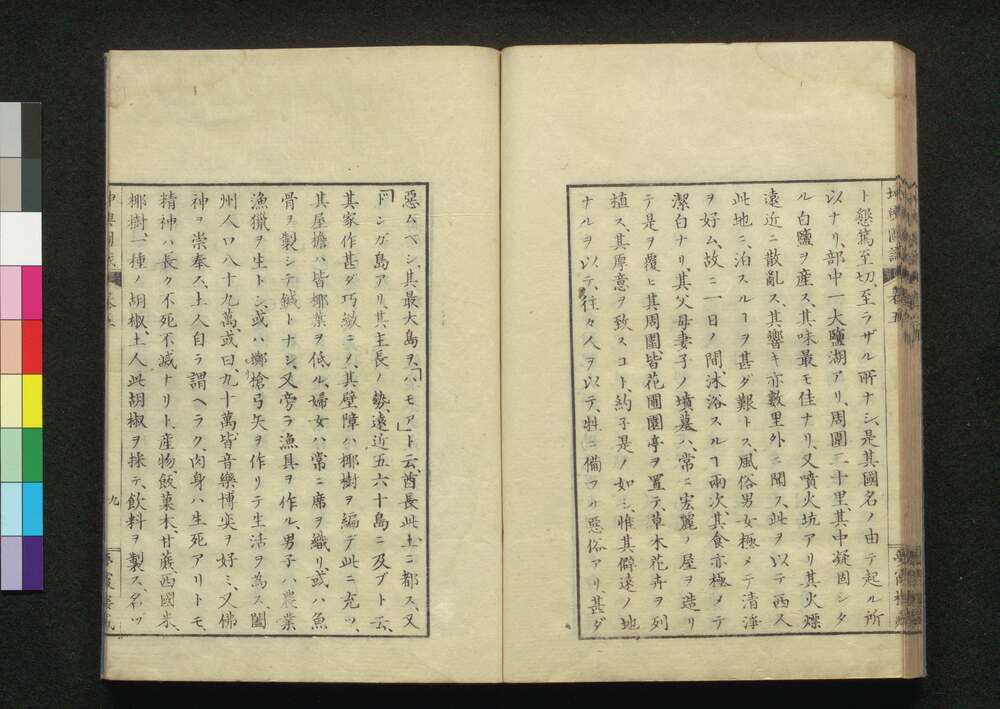 ト怨篤至切、至ラザル所ナシ、是其國名ノ由テ起ル所
以ナリ、部中一大鹽湖アリ、周圍二十里、其中凝固シタ
ル白鹽ヲ産ス、其味最モ佳ナリ、又噴火坑アリ其火燦
遠近ニ散亂ス、其響キ亦數里外ニ聞ス、此ヲ以テ西人
此地ニ泊スルヿヲ甚ダ艱トス、風俗男女極メテ清淨
ヲ好ム、故ニ一日ノ間沐浴スルヿ兩次、其食亦極メテ
潔白ナリ、其父母妻子ノ墳墓ハ、常ニ宏麗ノ屋ヲ造リ
テ是ヲ覆ヒ其周圍、皆花圃園亭ヲ置テ草木花卉ヲ列
植ス、其厚意ヲ致スコト、約子是ノ如シ、惟其僻遠ノ地
ナルヲ以テ、往々人ヲ以テ、牲ニ備フルノ惡俗アリ、甚ダ
坤輿圖識 卷五
惡ムベシ、其最大島ヲ、「ハモア」ト云、酋長此土ニ都ス、又
「トンガ島アリ、其主長ノ勢、遠近五六十島ニ及ブト云、
其家作甚ダ巧緻ニノ、其壁障ハ椰樹ヲ編デ此ニ充ツ、
其屋擔ハ皆椰葉ヲ低ル、婦女ハ常ニ席ヲ織リ或ハ魚
骨ヲ製シテ鍼トナシ、又旁ラ漁具ヲ作ル、男子ハ農業
漁獵ヲ生トシ、或ハ擲槍弓矢ヲ作リテ生活ヲ為ス、闔
州人口八十九萬、或曰、九十萬、皆音樂博奕ヲ好ミ、又佛
神ヲ崇奉ス、土人自ラ謂ヘラク、肉身ハ生死アリトモ、
精神ハ長ク不死不滅ナリト、産物、飯菓木、甘蔗、西國米、
椰樹、一種ノ胡椒、土人此胡椒ヲ採テ、飲料ヲ製ス、名ヅ
九